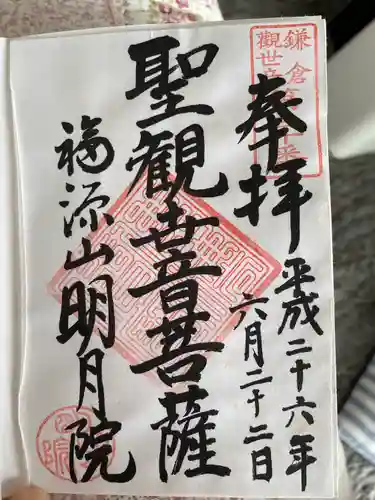 奉拝
平成二十六年
六月二十二日
聖観世音菩薩
福源山明月院